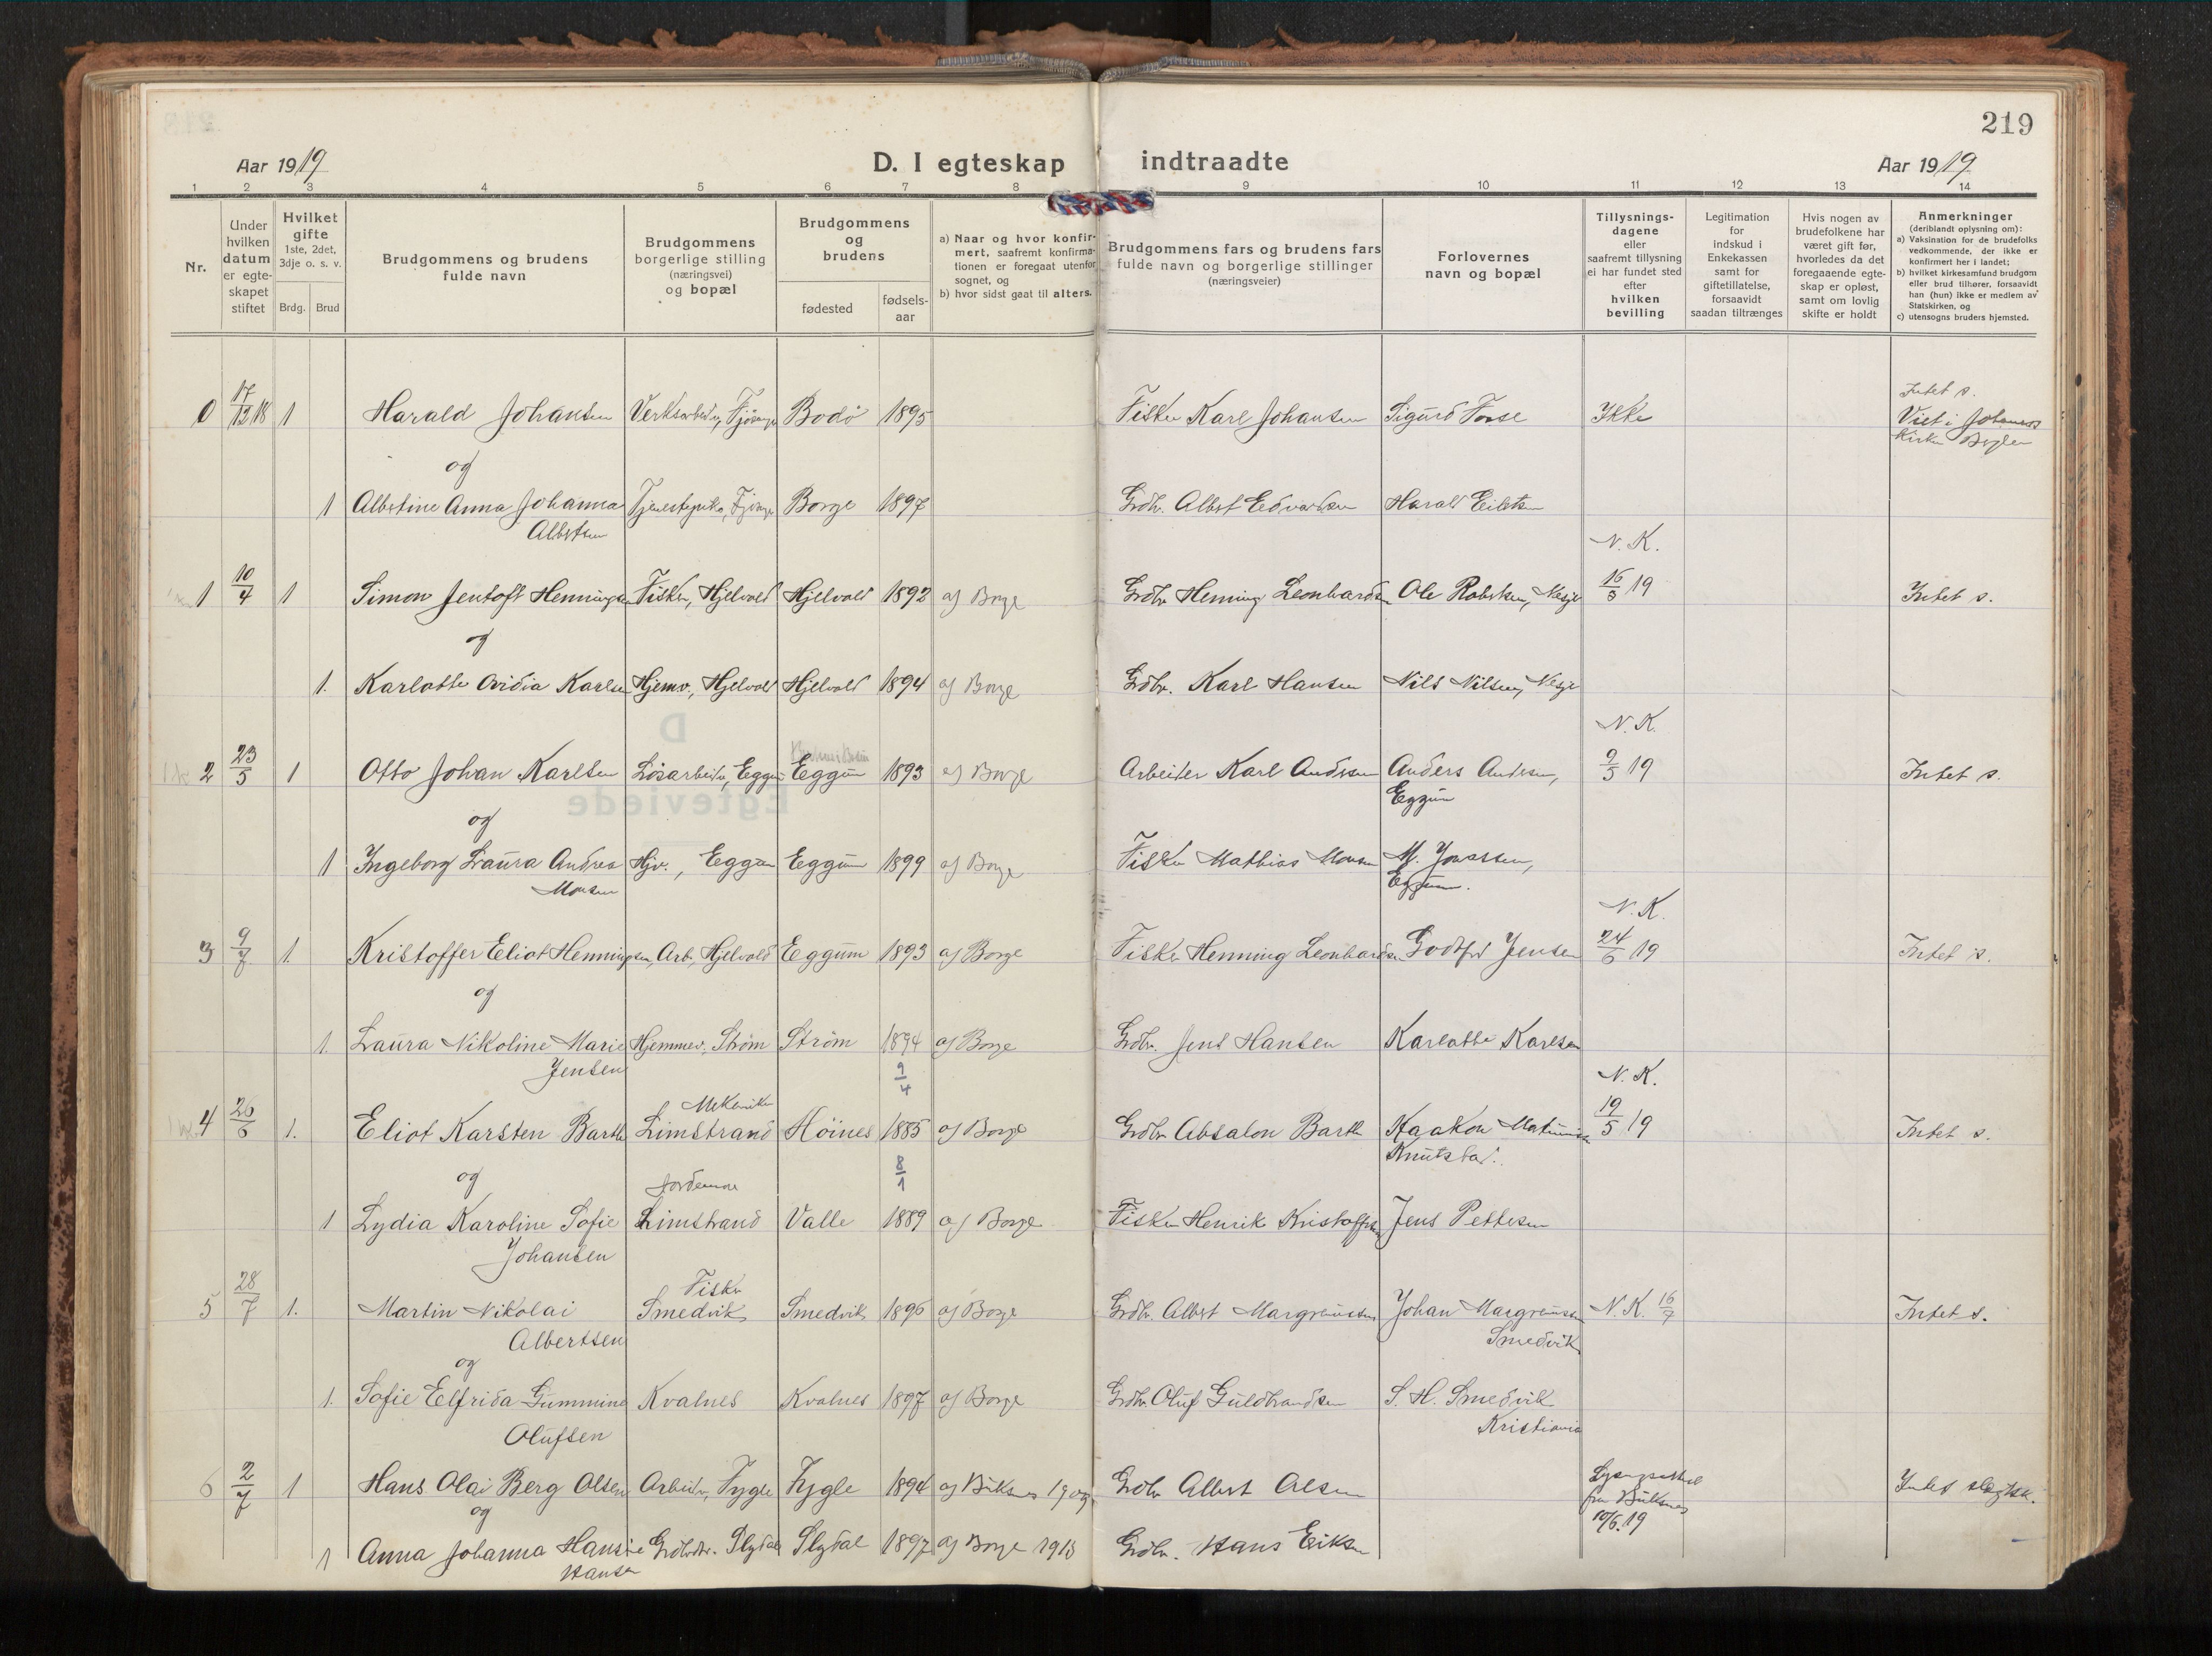 219
Aar 1919
D. I egteskap indtraadte
Aar 1919
1 2 3 4 5 6 7 8 9 10 11 12 13 14
Nr.
Under hvilken datum er egte- skapet stiftet
Hvilket gifte 1ste, 2det, 3dje o. s. v.
Brdg. Brud
Brudgommens og brudens fulde navn
Brudgommens borgerlige stilling (næringsvei) og bopæl
Brudgommens og brudens
fødested
fødsels- aar
a) Naar og hvor konfir- mert, saafremt konfirma- tionen er foregaat utenfor sognet, og
b) hvor sidst gaat til alters.
Brudgommens fars og brudens fars fulde navn og borgerlige stillinger (næringsveier)
Forlovernes navn og bopæl
Tillysnings- dagene eller saafremt tillysning ei har fundet sted efter hvilken bevilling
Legitimation for indskud i Enkekassen samt for giftetillatelse, forsaavidt saadan tiltrænges
Hvis nogen av brudefolkene har været gift før, hvorledes da det foregaaende egte- skap er opløst, samt om lovlig skifte er holdt
Anmerkninger (deriblandt oplysning om):
a) Vaksination for de brudefolks vedkommende, der ikke er konfirmert her i landet;
b) hvilket kirkesamfund brudgom eller brud tilhører, forsaavidt han (hun) ikke er medlem av Statskirken, og
c) utensogns bruders hjemsted.
Intet s.
0 17/12 18 1 Harald Johansen Bodö 1895 Fisker Karl Johansen Sigurd Ikke Viet i
og
1 Albertine Anna Johanna Borge 1897 Grdbr. Albert Edvardsen Harald
Albertsen
N. K.
1 10/4 1 Simon Jentoft Henningsen Fisker, Hjelvold Hjelvold 1892 af Borge Grdbr Henning Leonhardsen Ole Robertsen, 16/3 19 Intet s.
og
1. Karlotte Ovidia Karlsen Hjemv., Hjelvold Hjelvold 1894 af Borge Grdbr. Karl Hansen Nils Nilsen,
N. K.
2 23/5 1 Otto Johan Karlsen Lösarbeider, Eggum Eggum 1893 af Borge Arbeider Karl Andersen Anders Andersen, 9/5 19 Intet s.
Eggum
og
1 Ingeborg Laura Andrea Hjv., Eggum Eggum 1899 af Borge Fisker Mathias Monsen M. Jonassen,
Monsen Eggum.
N. K.
3 9/7 1. Kristoffer Eliot Henningsen, Arb., Hjelvold Eggum 1893 af Borge Fisker Henning Leonhardsen Godtfred Jensen 24/6 19 Intet s.
og
1. Laura Nikoline Marie Hjemmev., Ström Ström 1894 af Borge Grdbr. Jens Hansen Karlotte Karlsen
Jensen 9/4 N. K.
Mekaniker
4 26/6 1. Eliot Karsten Barth Limstrand Höines 1885 af Borge Grdbr Absalon Barth Haakon 19/5 19 Intet s.
Knutstad.
og Jordemor 8/1
1 Lydia Karoline Sofie Limstrand Valle 1889 af Borge Fisker Henrik Kristoffersen Jens Pettersen
Johansen
Fisker
5 28/7 1. Martin Nikolai Smedvik Smedvik 1896 af Borge Grdbr. Albert Margreussen Johan Margreussen N. K. 16/7 Intet s.
Albertsen Smedvik
og
1. Sofie Elfrida Gummine Kvalnes Kvalnes 1897 af Borge Grdbr. Oluf Guldbrandsen S. H. Smedvik
Olufsen Kristiania
6 2/7 1 Hans Olai Berg Olsen Arbeider, Fygle Fygle 1894 af Buksnes 1909 Grdbr Albert Olsen fra Buksnes Intet slegtsk.
og 10/6.19
1 Anna Johanna Hansine Slydal 1897 af Borge 1913 Grdbr. Hans Eriksen
Hansen